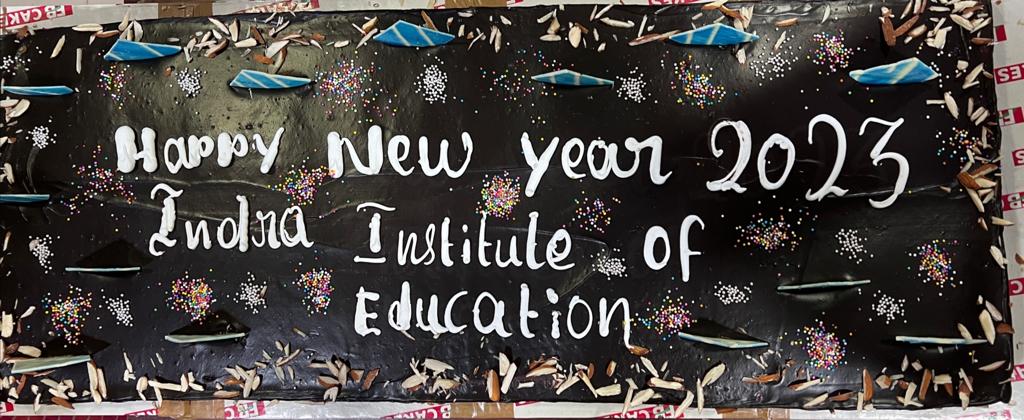 Happy New year 2023
Indra Institute of
Education
FB CAKES